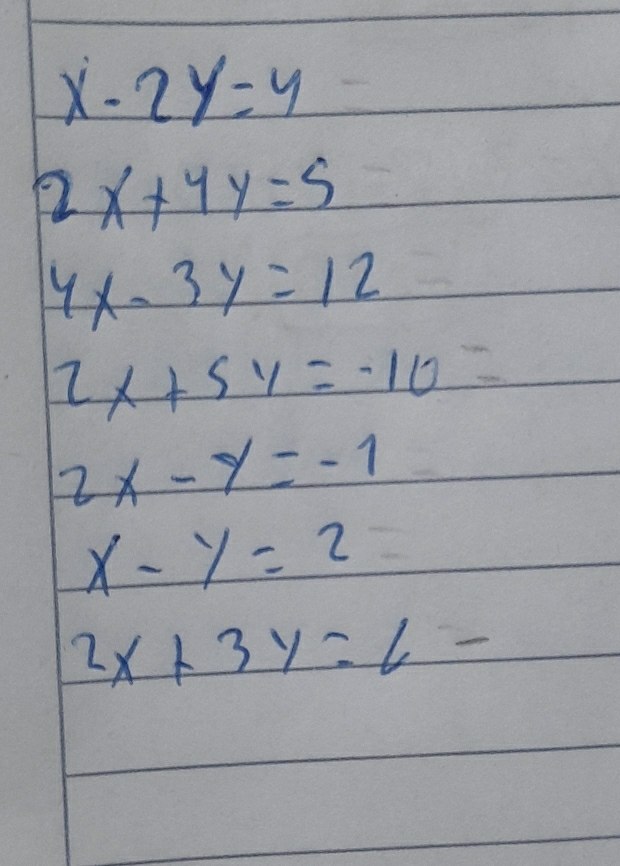 x-2y=4
2x+4y=5
4x-3y=12
2x+5y=-10
2x-y=-1
x-y=2
2x+3y=6